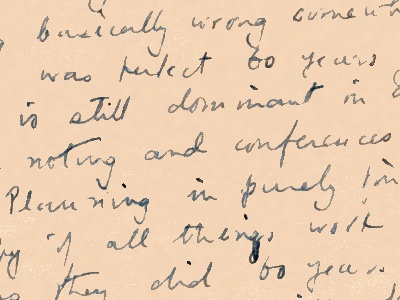 basically wrong somewh
was perfect 60 years
is still dominant in
noting and conferences
Planning in purely
by if all things work
they did 60 years